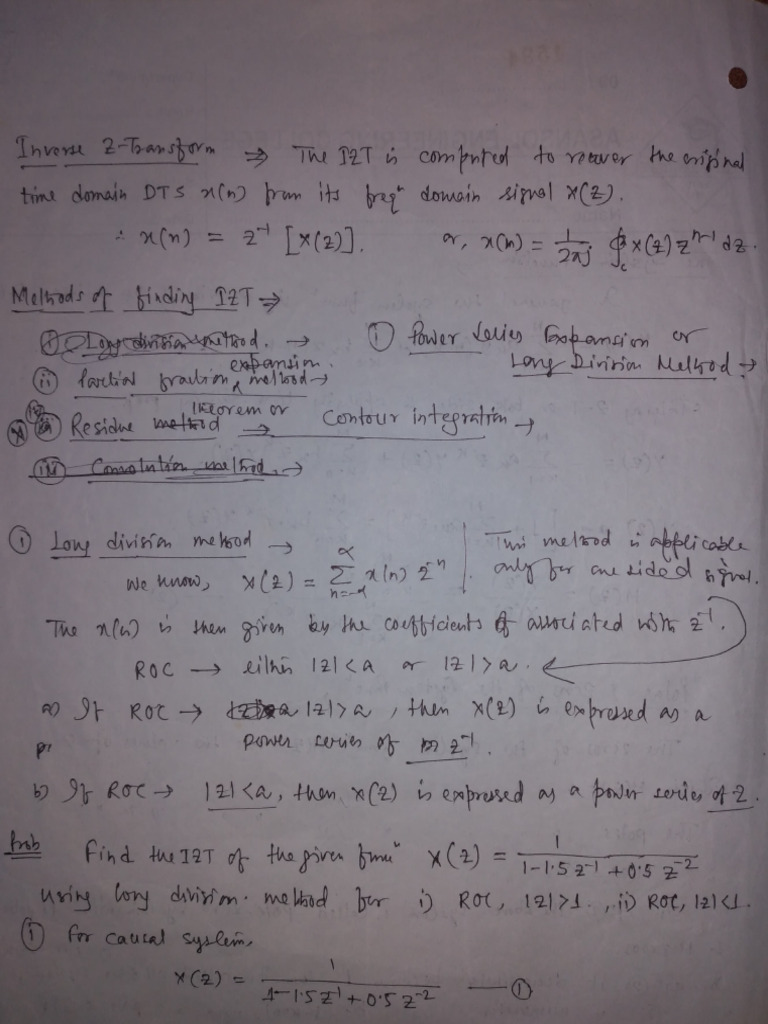 Inverse Z-Transform ⇒ The IZT is computed to recover the original
time domain DTS x(n) from its freqⁿ domain signal X(Z).
∴ x(n) = z⁻¹ [X(z)]. or, x(n) = 1/2πj ∮c X(z) zⁿ⁻¹ dz.
Methods of finding IZT ⇒
(i) Long division method. → (i) Power Series Expansion or
Long Division Method →
(ii) Partial fraction expansion method →
Residue method theorem or ⇒ Contour integration →
(iii) Convolution method. →
(i) Long division method →
We know, X(z) = Σ n=-α α x(n) z⁻ⁿ | This method is applicable only for one sided signal.
The x(n) is then given by the coefficients of associated with z⁻¹.
ROC → either |z|<a or |z|>a.
a) If ROC → |z|>a, then X(z) is expressed as a
power series of z⁻¹.
b) If ROC → |z|<a, then X(z) is expressed as a power series of z.
Prob Find the IZT of the given funcⁿ X(z) = 1/(1-1.5 z⁻¹ + 0.5 z⁻²)
using long division method for i) ROC, |z|>1., ii) ROC, |z|<1.
(i) For causal system,
X(z) = 1/(1-1.5 z⁻¹ + 0.5 z⁻²) — (1)